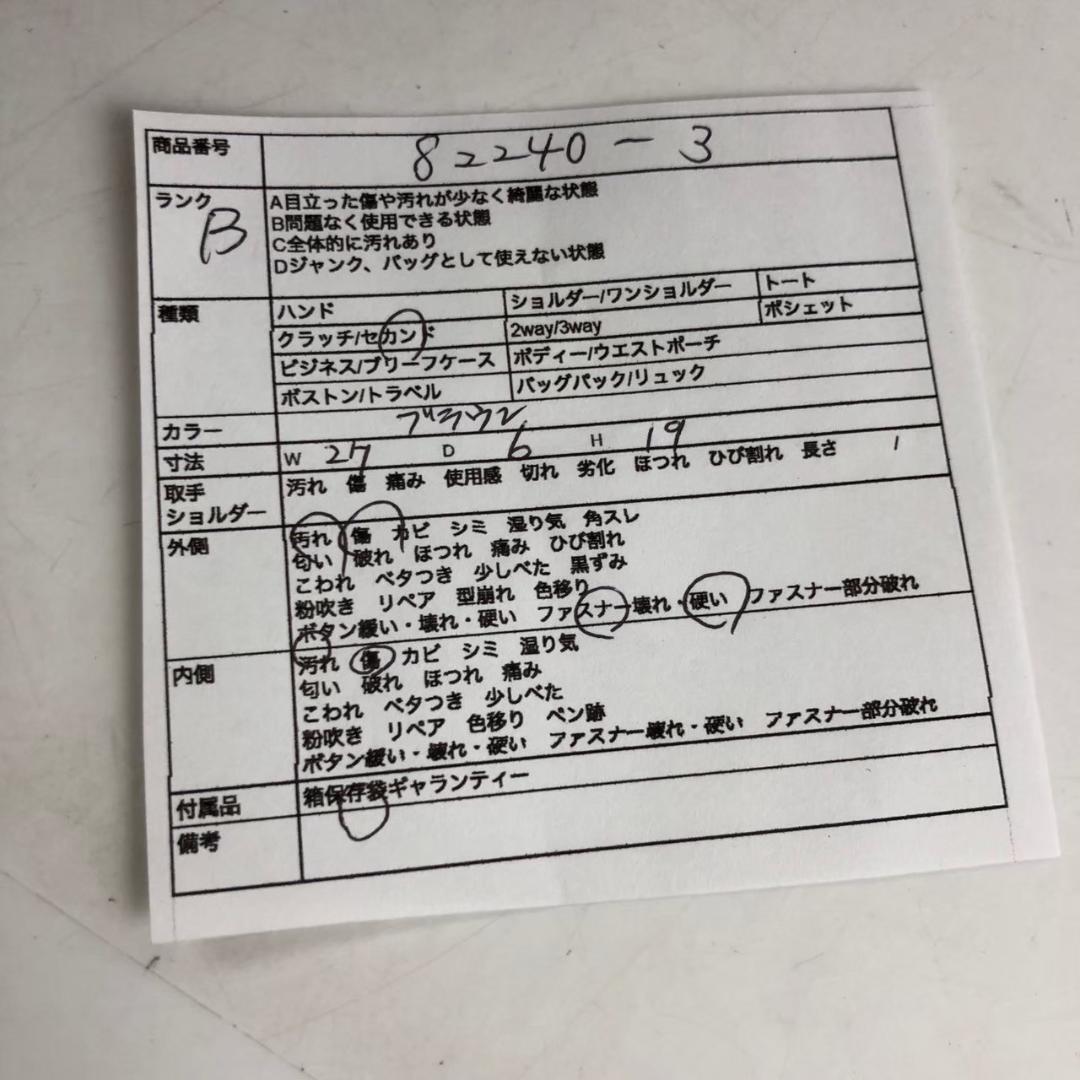 商品番号 82240-3
ランク B
A目立った傷や汚れが少なく綺麗な状態
B問題なく使用できる状態
C全体的に汚れあり
Dジャンク、バッグとして使えない状態
種類 ハンド ショルダー/ワンショルダー トート
クラッチ/セカンド 2way/3way ポシェット
ビジネス/ブリーフケース ボディー/ウエストポーチ
ボストン/トラベル バッグパック/リュック
カラー ブラウン
寸法 W 27 D 6 H 19
取手 汚れ 傷 痛み 使用感 切れ 劣化 ほつれ ひび割れ 長さ
ショルダー
外側 汚れ 傷 カビ シミ 湿り気 角スレ
匂い 破れ ほつれ 痛み ひび割れ
こわれ ベタつき 少しべた 黒ずみ
粉吹き リペア 型崩れ 色移り
ボタン緩い・壊れ・硬い ファスナー壊れ・硬い ファスナー部分破れ
内側 汚れ 傷 カビ シミ 湿り気
匂い 破れ ほつれ 痛み
こわれ ベタつき 少しべた
粉吹き リペア 色移り ペン跡
ボタン緩い・壊れ・硬い ファスナー壊れ・硬い ファスナー部分破れ
付属品 箱保存袋ギャランティー
備考